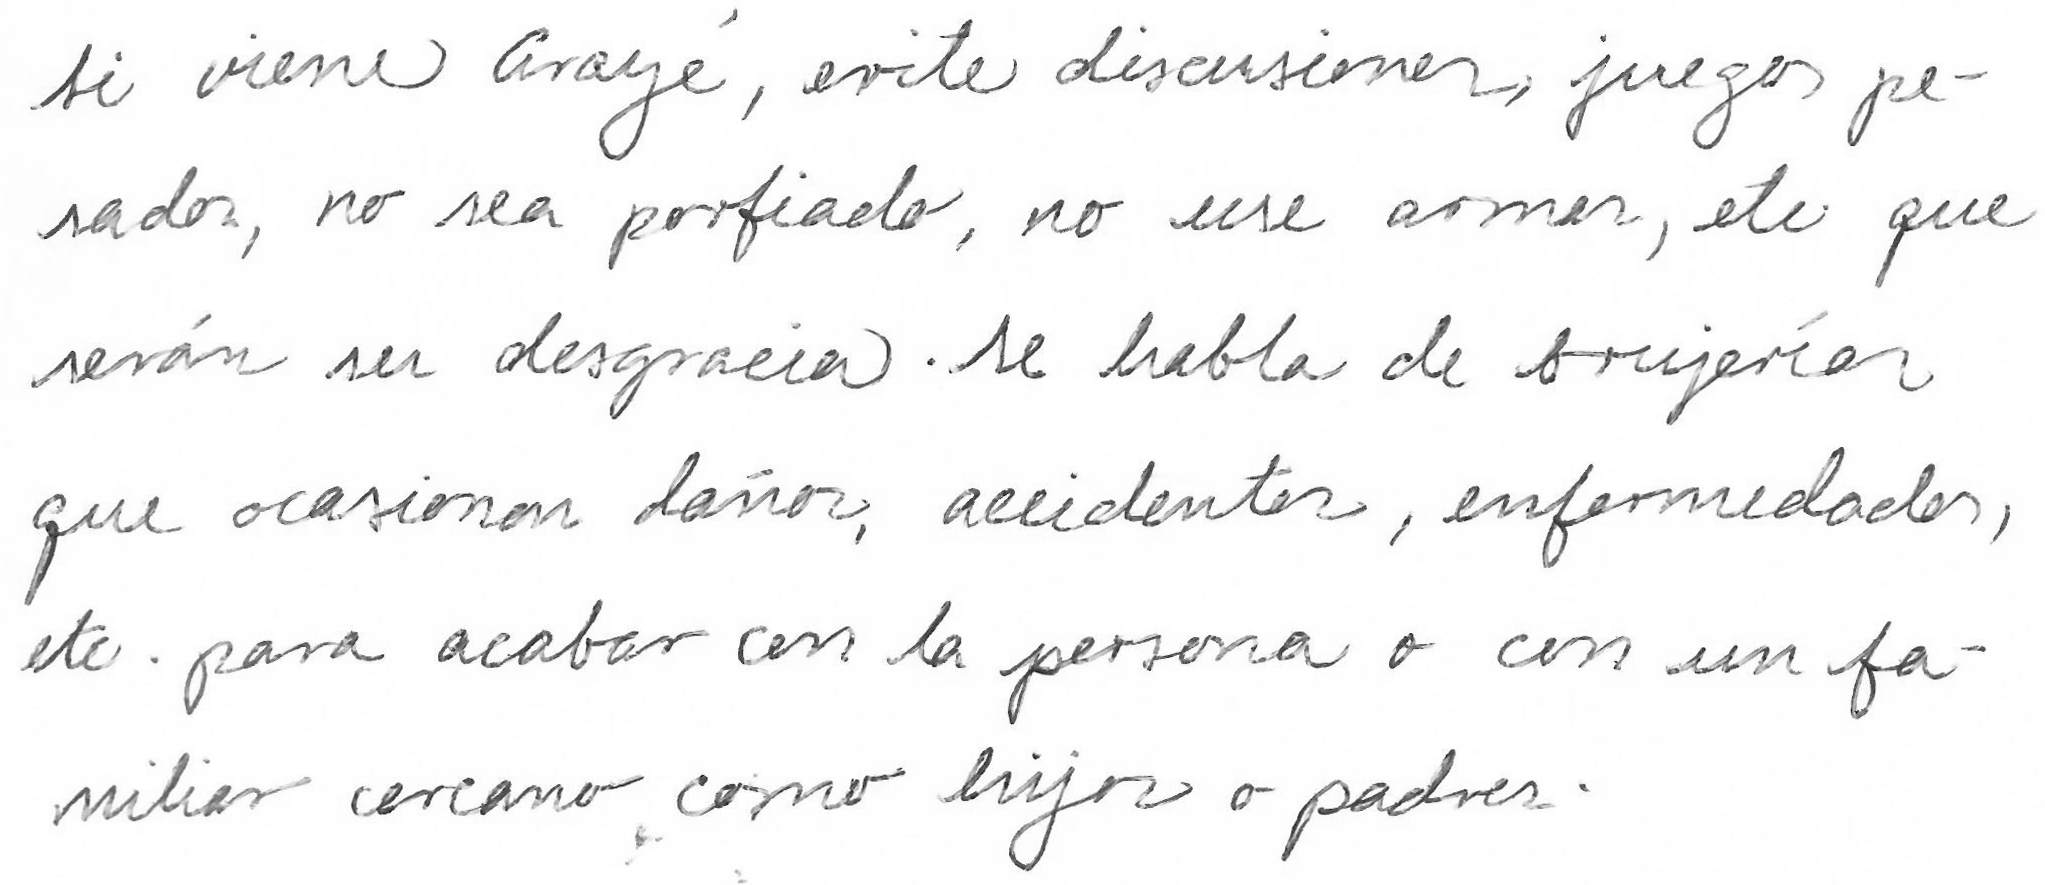 si viene Arayé, evite discusiones, juegos pe-
sados, no sea porfiado, no use armas, etc que
serán su desgracia. Se habla de brujerías
que ocasionan daños, accidentes, enfermedades,
etc. para acabar con la persona o con un fa-
miliar cercano como hijos o padres.